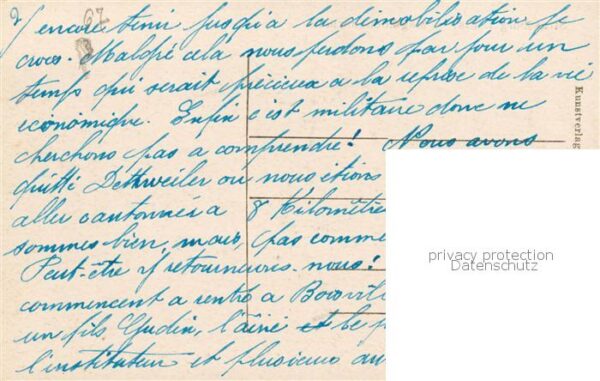 2) y encore tenir jusqu'a la démobilisation je
67
crois. Malgré cela nous perdons par jour un
temps qui serait précieux a la reprise de la vie
économique. Enfin c'est militaire donc ne
cherchons pas a comprendre! Nous avons
quitté Dettweiler ou nous étions
aller cantonnés a 8 Kilomètre
sommes bien, mais, pas comme
Peut-être y retournerons-nous!
commencent a rentré a
un fils Gudin, l'ainé et le
l'instituteur et plusieurs au
Kunstverlag
privacy protection
Datenschutz